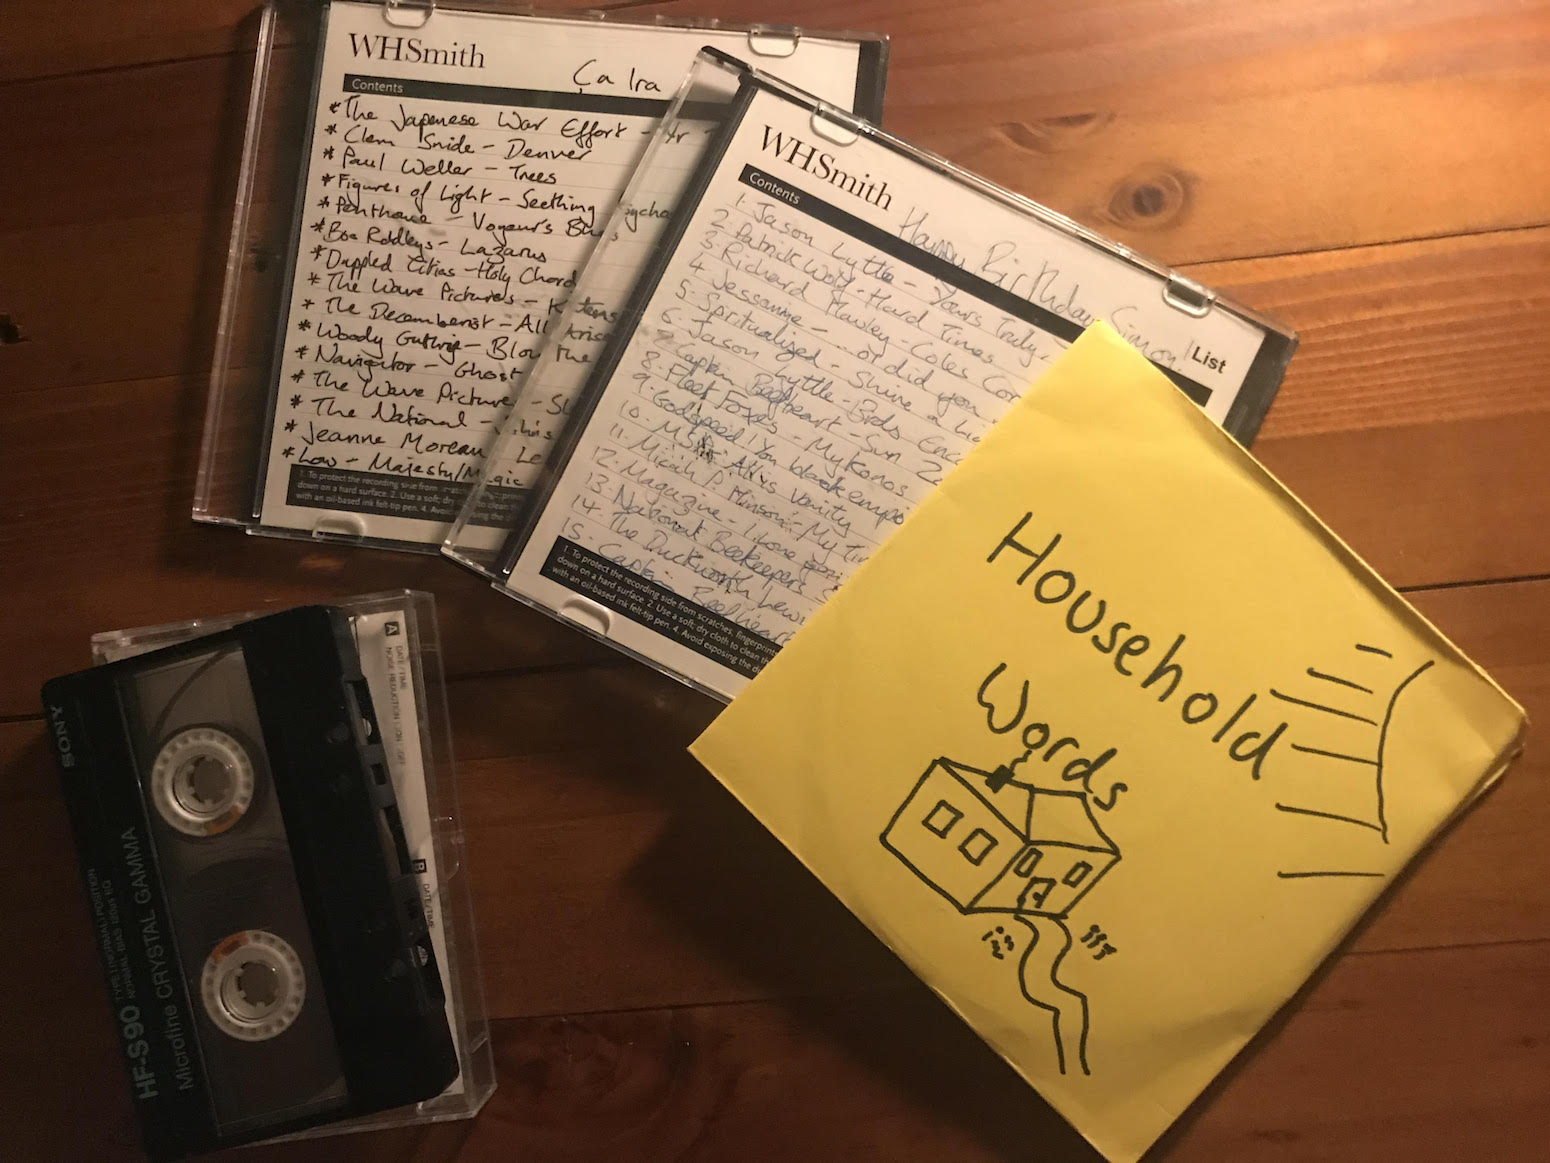 WHSmith
Ça Ira
Contents
* The Japanese War Effort -
* Clem Snide - Denver
* Paul Weller - Trees
* Figures of Light - Seething
* Penthouse - Voyeur's
* Boo Radleys - Lazarus
* Dappled Cities - Holy Chord
* The Wave Pictures -
* The Decemberist - All Arise
* Woody Guthrie - Blow the
* Navigator - Ghost
* The Wave Pictures -
* The National -
* Jeanne Moreau - Le
* Low - Majesty/Magic
1. To protect the recording side from
down on a hard surface. 2. Use a soft, dry
with an oil-based ink felt-tip pen. 4. Avoid
WHSmith
Happy Birthday Simon!
List
Contents
1. Jason Lyttle - Yours Truly,
2. Patrick Wolf - Hard Times
3. Richard Hawley - Coles Cor
4. Jessamine - ... or did you
5. Spiritualized - Shine a Lig
6. Jason Lyttle - Birds Enc
7. Captain Beefheart - Sun Z
8. Fleet Foxes - Mykonos
9. Godspeed! You black empe
10. Allis Vanity
11. Micah P Hinson - My Tim
12. Magazine - I Love you
13. National Beekeepers S
14. The Duckworth Lewis
15. Captain Beefheart
1. To protect the recording side from scratches, fingerprint
down on a hard surface. 2. Use a soft, dry cloth to clean th
with an oil-based ink felt-tip pen. 4. Avoid exposing the d
Household
Words
SONY
HF-S90
TYPE I (NORMAL) POSITION
NORMAL BIAS 120μs EQ
Microfine CRYSTAL GAMMA
A
DATE/TIME
NOISE REDUCTION
B
DATE/TIME